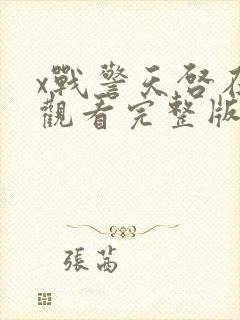 x戰警天啓在
觀看完整版
張茜